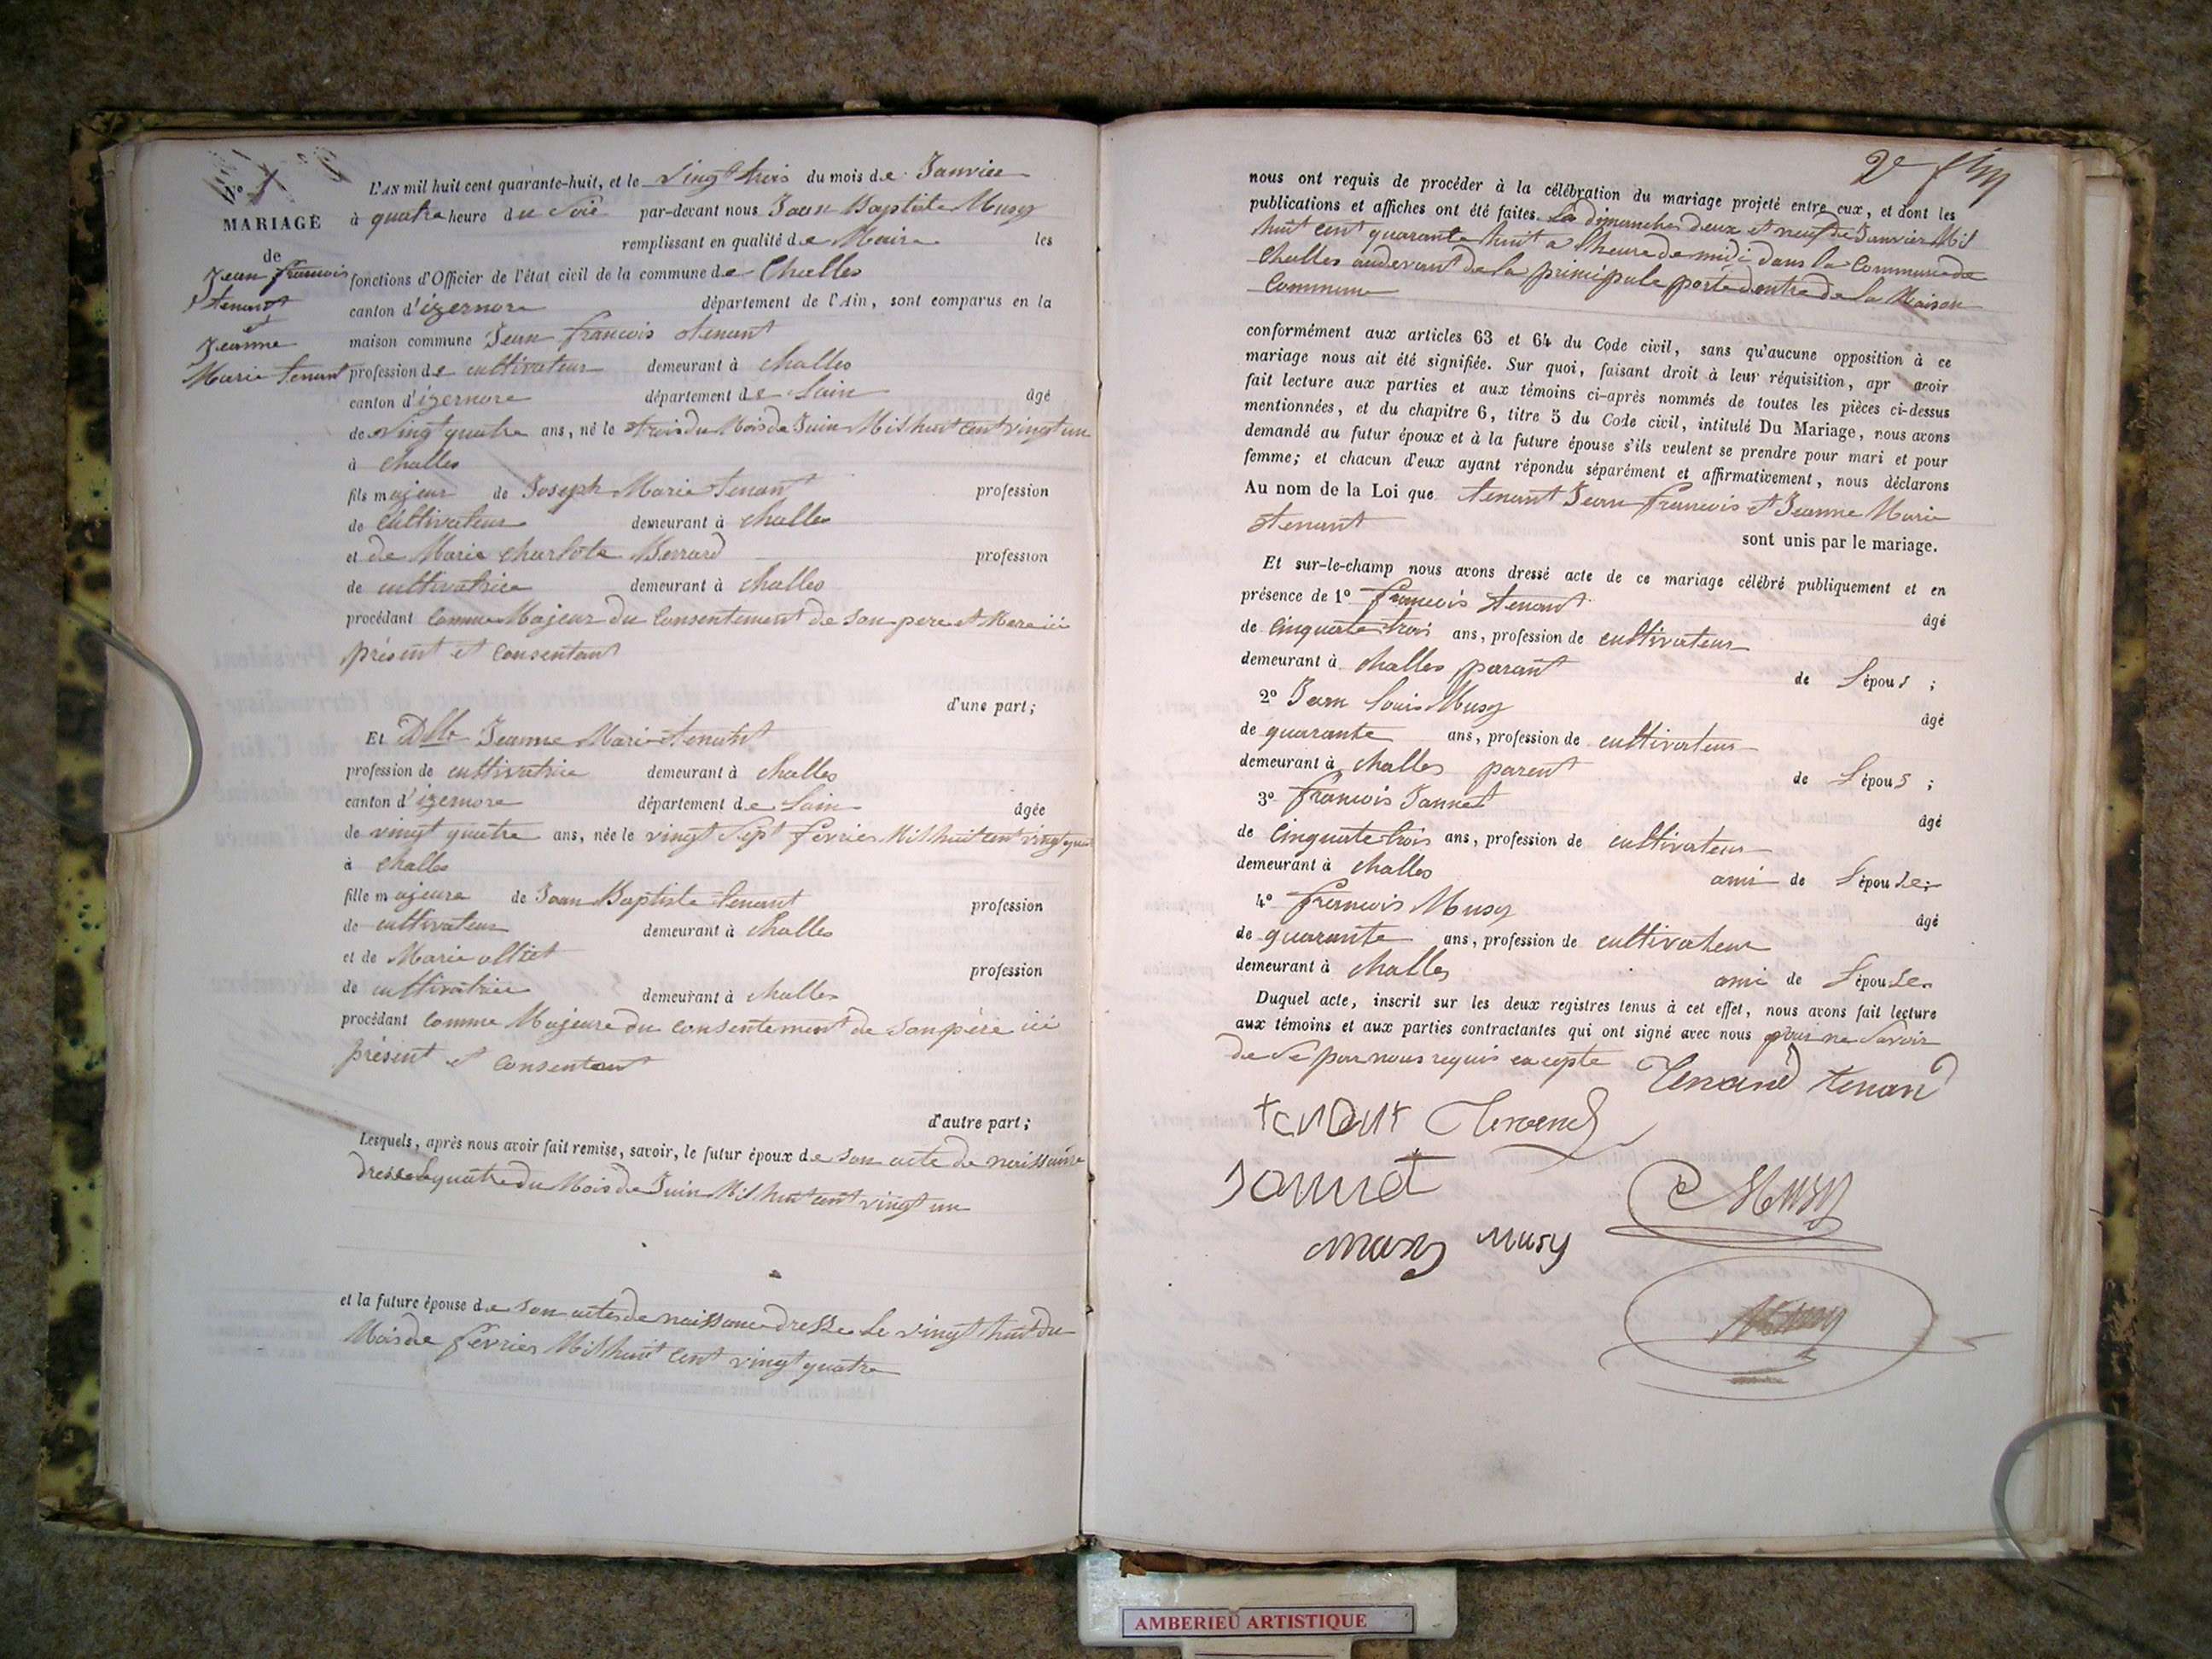 N° 1
MARIAGE
de
Jean francois
tenant
et
Jeanne
Marie tenant
L'AN mil huit cent quarante-huit, et le vingt trois du mois de Janvier
à quatre heure du Soir par-devant nous Jean Baptiste Musy
remplissant en qualité de Maire les
fonctions d'Officier de l'état civil de la commune de Challes
canton d'izernore département de l'Ain, sont comparus en la
maison commune Jean francois tenant
profession de cultivateur demeurant à challes
canton d'izernore département de Lain âgé
de vingt quatre ans, né le trois du Mois de Juin Mil huit cent vingt un
à challes
fils majeur de Joseph Marie tenant profession
de cultivateur demeurant à challes
et de Marie charlote Berrard profession
de cultivatrice demeurant à challes
procédant comme Majeur du Consentement de son pere et Mere ici
présent et consentant
d'une part;
Et Dlle Jeanne Marie tenant
profession de cultivatrice demeurant à challes
canton d'izernore département de Lain âgée
de vingt quatre ans, née le vingt Sept fevrier Mil huit cent vingt quatre
à challes
fille majeure de Jean Baptiste tenant profession
de cultivateur demeurant à challes
et de Marie alliet profession
de cultivatrice demeurant à challes
procédant comme Majeure du consentement de son père ici
présent et consentant
d'autre part;
Lesquels, après nous avoir fait remise, savoir, le futur époux de son acte de naissance
dressé le quatre du Mois de Juin Mil huit cent vingt un
et la future épouse de son acte de naissance dressé le vingt huit du
Mois de fevrier Mil huit cent vingt quatre
2e
nous ont requis de procéder à la célébration du mariage projeté entre eux, et dont les
publications et affiches ont été faites. Les dimanches deux et neuf de Janvier Mil
huit cent quarante huit a lheure de midi dans la commune de
Challes audevant de la principale porte dentre de la Maison
Commune
conformément aux articles 63 et 64 du Code civil, sans qu'aucune opposition à ce
mariage nous ait été signifiée. Sur quoi, faisant droit à leur réquisition, apr avoir
fait lecture aux parties et aux témoins ci-après nommés de toutes les pièces ci-dessus
mentionnées, et du chapitre 6, titre 5 du Code civil, intitulé Du Mariage, nous avons
demandé au futur époux et à la future épouse s'ils veulent se prendre pour mari et pour
femme; et chacun d'eux ayant répondu séparément et affirmativement, nous déclarons
Au nom de la Loi que tenant Jean francois et Jeanne Marie
tenant
sont unis par le mariage.
Et sur-le-champ nous avons dressé acte de ce mariage célébré publiquement et en
présence de 1° francois tenant âgé
de cinquate trois ans, profession de cultivateur
demeurant à challes parant de Lépous;
2° Jean Louis Musy âgé
de quarante ans, profession de cultivateur
demeurant à challes parent de Lépous;
3° francois Jannet âgé
de cinquate trois ans, profession de cultivateur
demeurant à challes ami de Lépouse;
4° francois Musy âgé
de quarante ans, profession de cultivateur
demeurant à challes ami de Lépouse.
Duquel acte, inscrit sur les deux registres tenus à cet effet, nous avons fait lecture
aux témoins et aux parties contractantes qui ont signé avec nous ne Savoir
de Se par nous requis excepte Tenand tenan
tenant Tenand
Jannet
C Musy
musy musy
Musy
AMBERIEU ARTISTIQUE